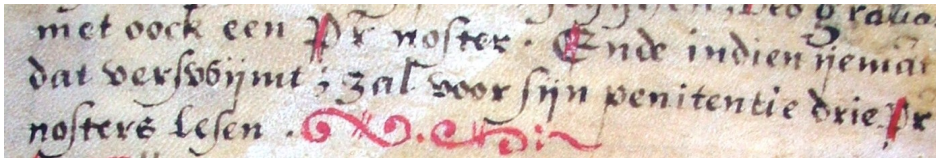 Deo gratias
met oock een Pr noster. Ende indien yemāt
dat verswijmt, zal voor sijn penitentie drie Pr
nosters lesen.